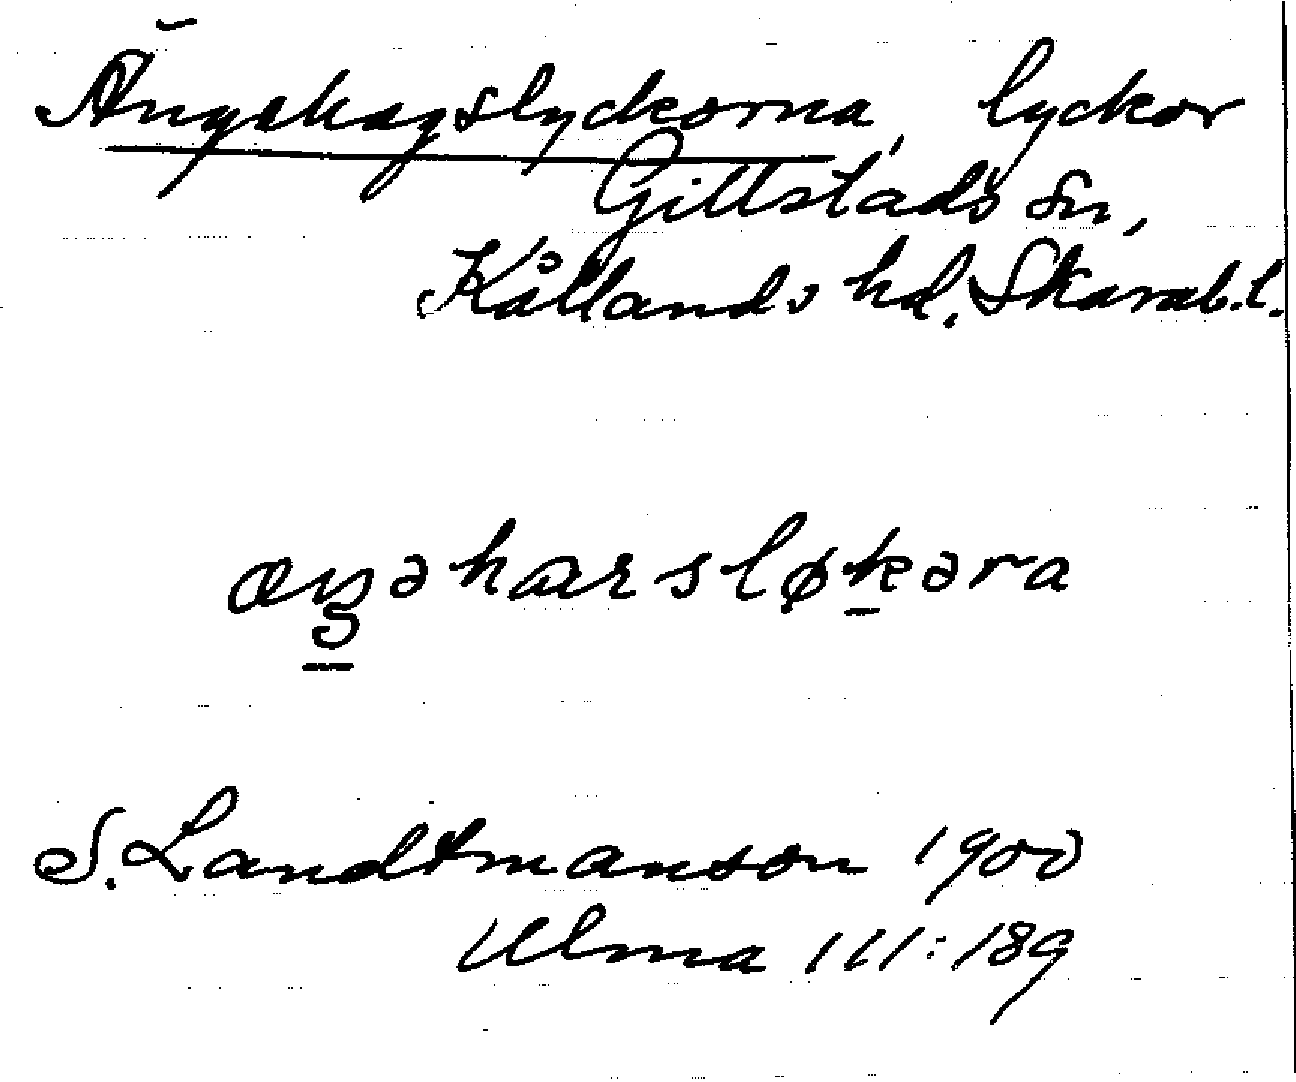 Ängahagslyckorna, lyckor
Gillstads sn,
Kållands hd. Skarab.l.
æŋəhaʀsløkəra
S. Landtmanson 1900
Ulma 111:189